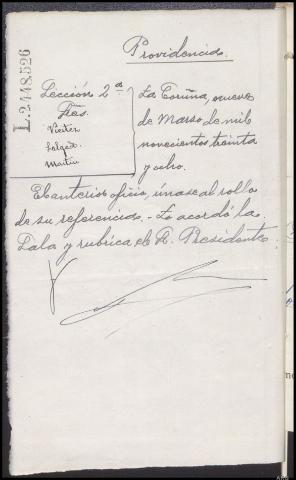 L.2448.526
Providencia.
Sección 2ª
Sres.
Vieitez
Salgado.
Martín
La Coruña, nueve
de Marzo de mil
novecientos treinta
y ocho.
El anterior oficio, únase al rollo
de su referencia. - Lo acordó la
Sala y rubrica el Sr. Presidente